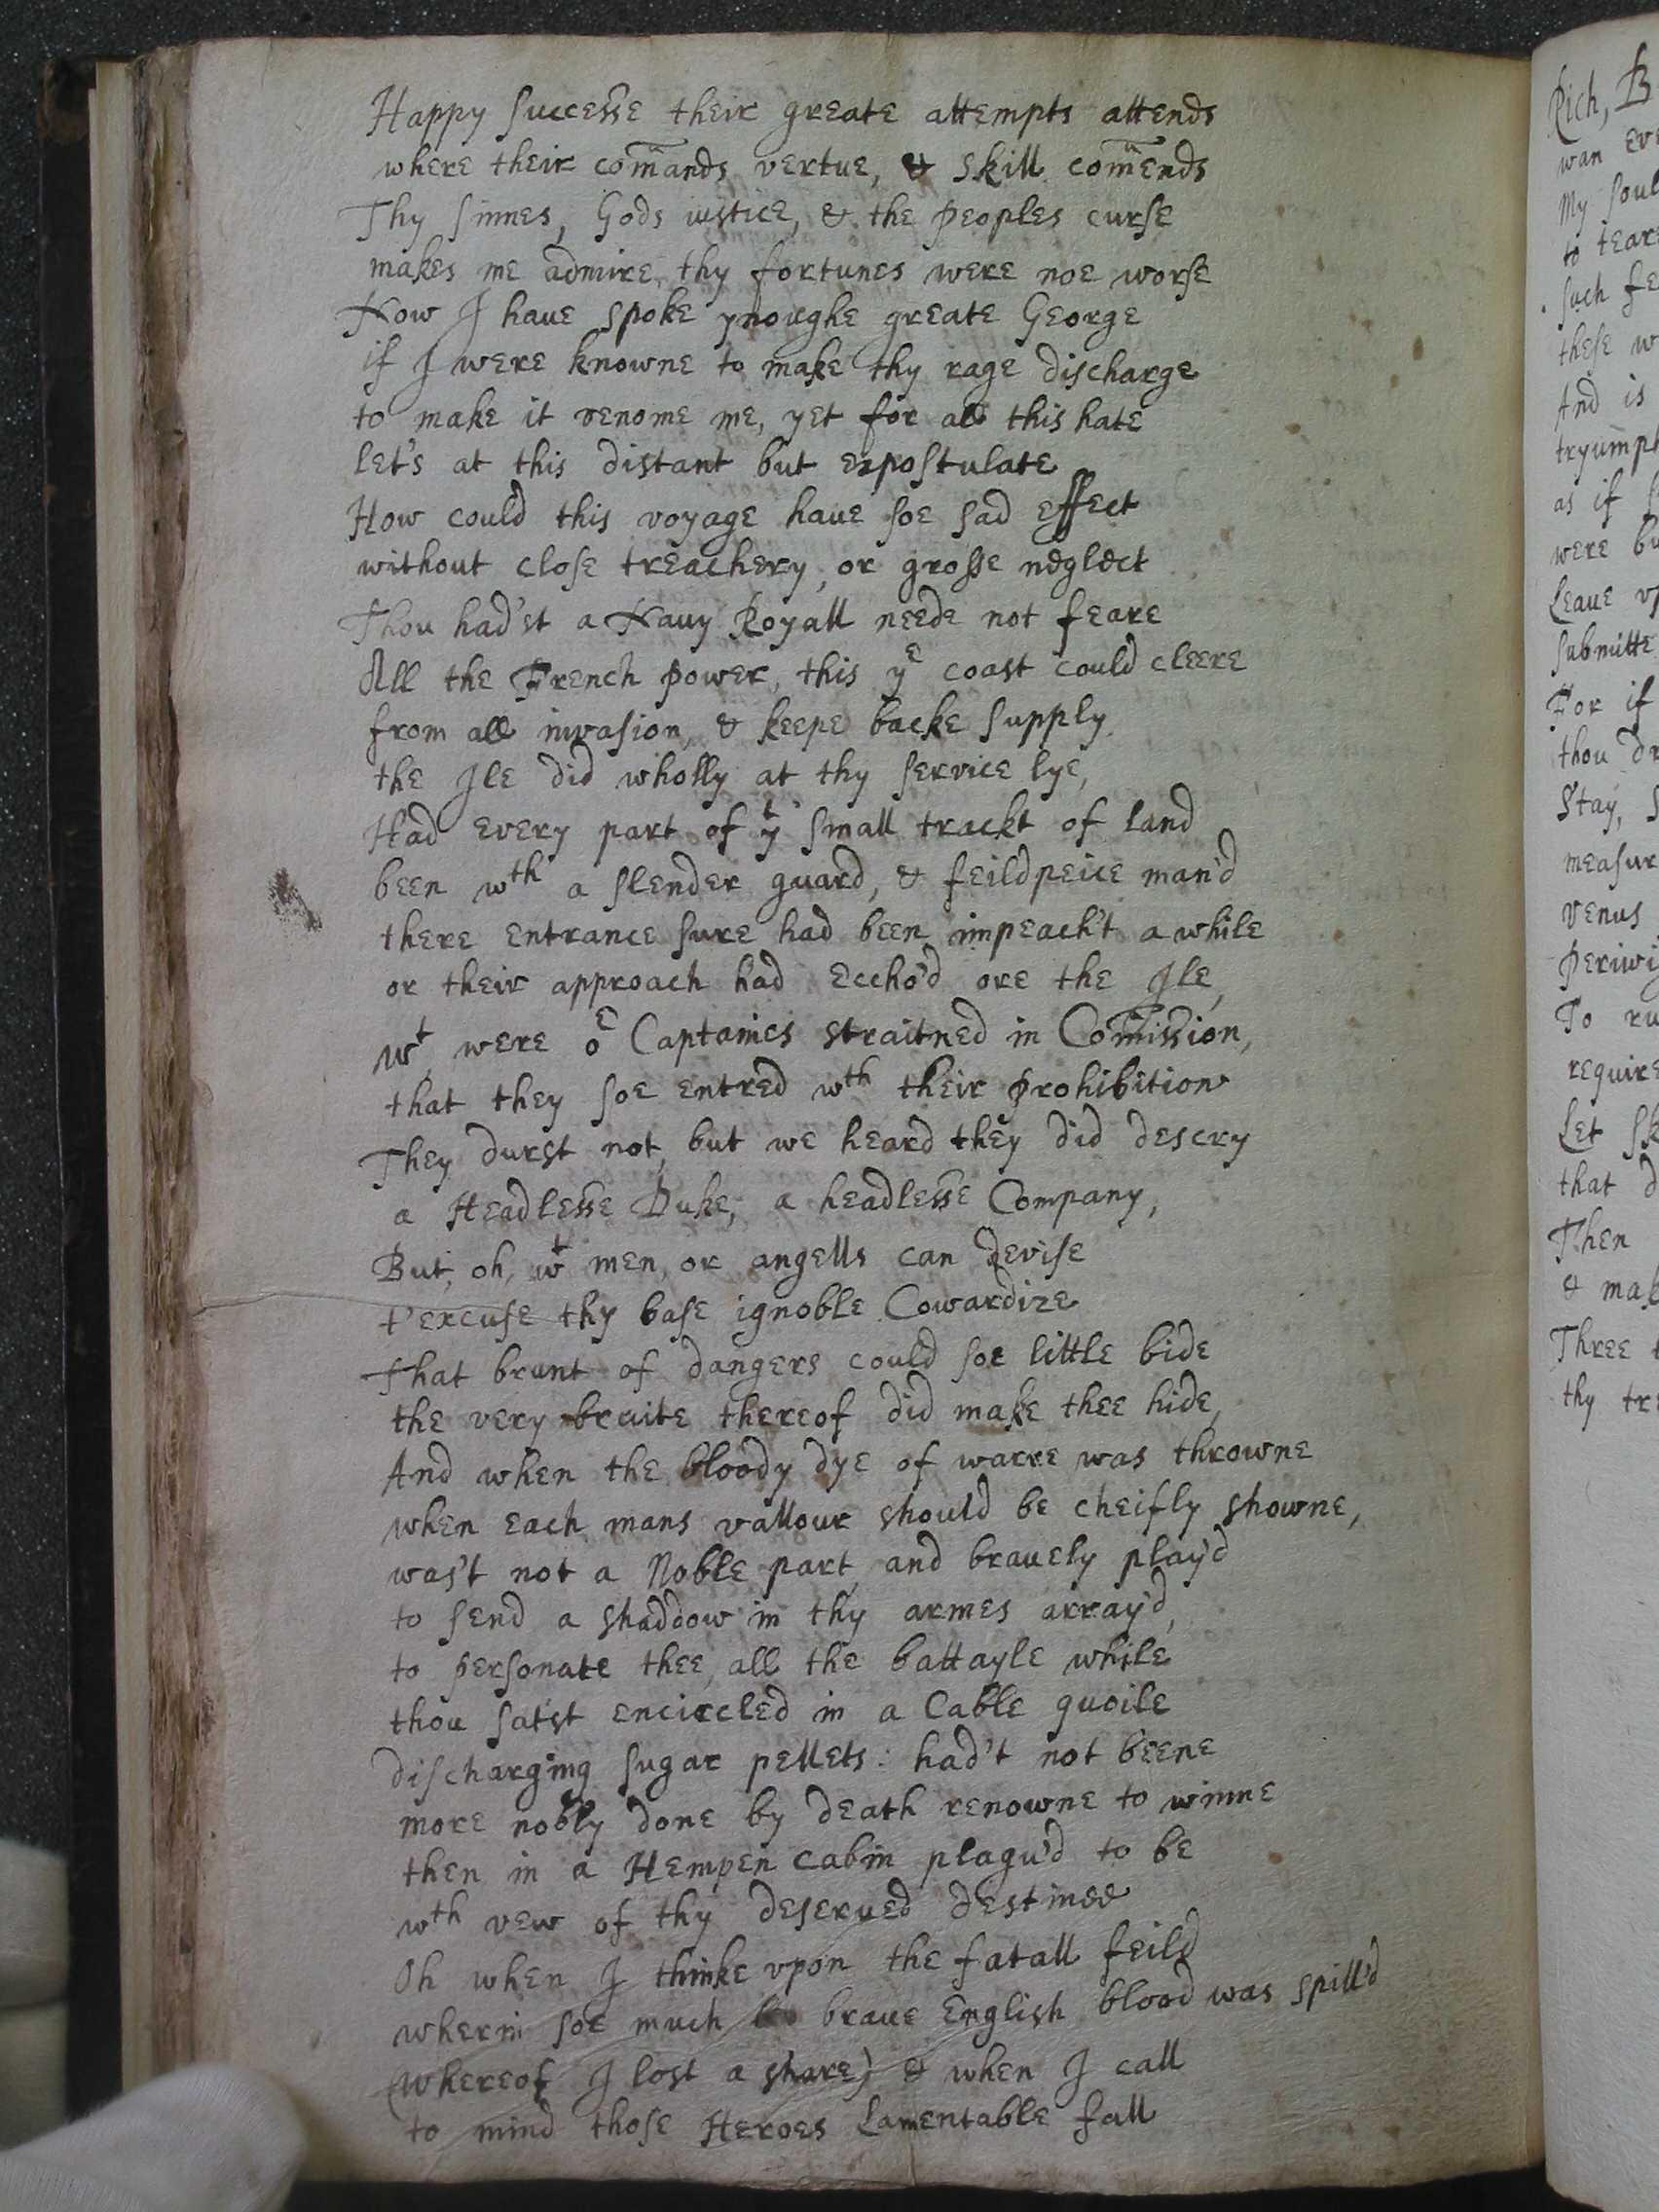 Happy successe their greate attempts attends
where their com̄ands vertue, & skill com̄ends
Thy sinnes, Gods iustice, & the peoples curse
makes me admire, thy fortunes were noe worse
Now I haue spoke ynoughe greate George
if I were knowne to make thy rage discharge
to make it venome me, yet for all this hate
let's at this distant but expostulate
How could this voyage haue soe sad effect
without close treachery, or grosse neglect
Thou had'st a Nauy Royall neede not feare
All the French power, this yᵉ coast could cleere
from all invasion, & keepe backe supply
the Ile did wholly at thy service lye,
Had every part of yᵗ small trackt of land
been wᵗʰ a slender guard, & feildpeice man'd
there entrance sure had been impeach't a while
or their approach had Eccho'd ore the Ile,
wᵗ were oʳ Captaines straitned in Com̄ission,
that they soe entred wᵗʰ their prohibition
They durst not, but we heard they did descry
a Headlesse Duke, a headlesse Company,
But, oh, wᵗ men, or angells can devise
t'excuse thy base ignoble Cowardize
That brunt of dangers could soe little bide
the very bruite thereof did make thee hide,
And when the bloody dye of warre was throwne
when each mans vallour should be cheifly showne,
was't not a Noble part, and brauely play'd
to send a shaddow in thy armes array'd,
to personate thee, all the battayle while
thou satst encircled in a Cable quoile
discharging sugar pellets: had't not beene
more nobly done by death renowne to winne
then in a Hempen cabin plagu'd to be
wᵗʰ vew of thy deserued destinee
Oh when I thinke vpon the fatall feild
wherin soe much braue English blood was spill'd
(whereof I lost a share) & when I call
to mind those Heroes Lamentable fall
Rich,
wan
My
to
such
these
And is
as if
were
Leaue
submitte
For if
thou
Stay,
venus
To
Let
that
Then
& 
Three
thy